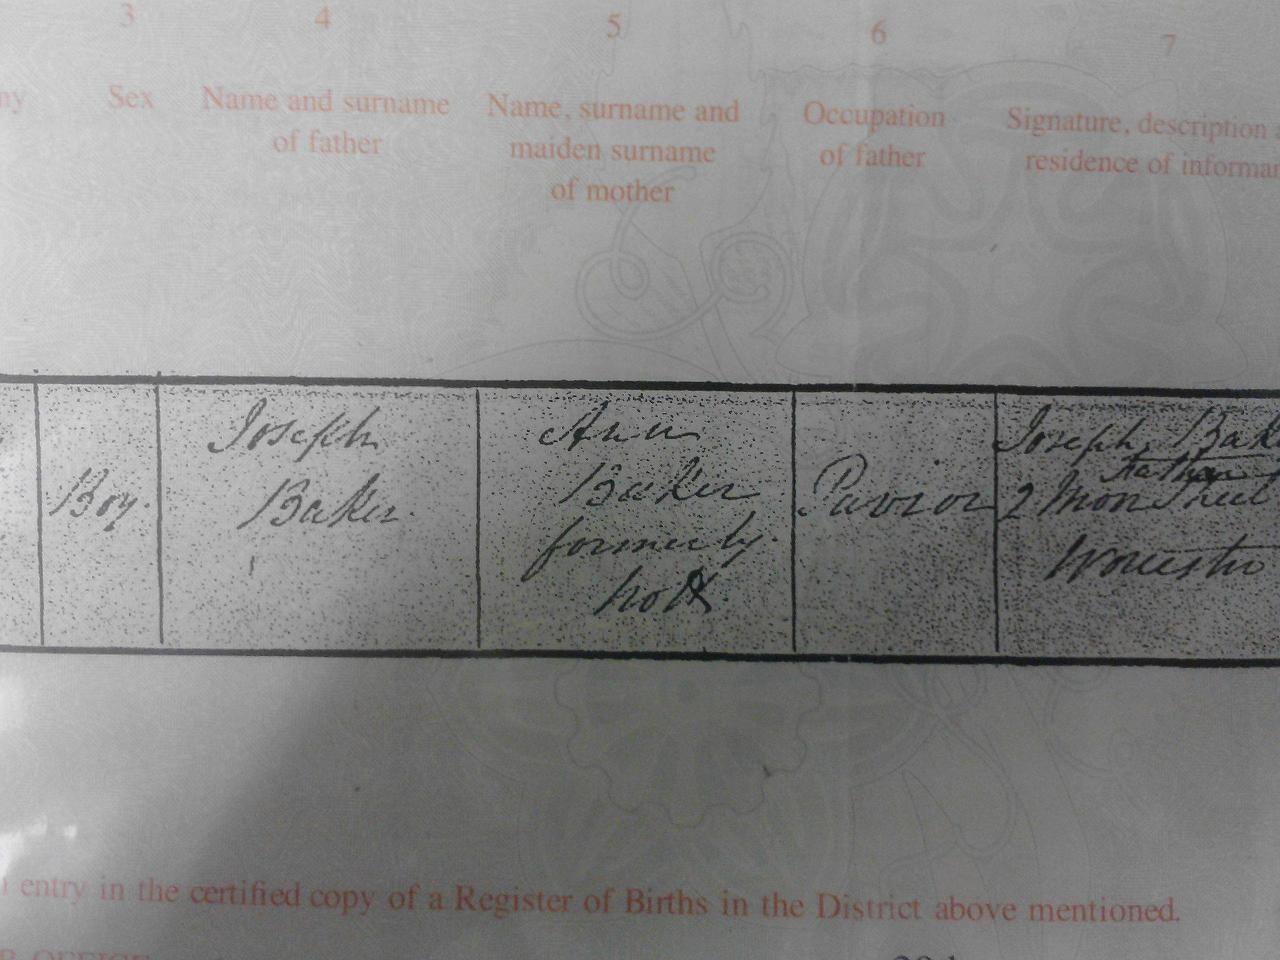 3 4 5 6 7
Sex Name and surname of father Name, surname and maiden surname of mother Occupation of father Signature, description residence of informan
Boy. Joseph Baker. Ann Baker formerly Pavior Joseph Bak Father 2 Moor Street Worcester
entry in the certified copy of a Register of Births in the District above mentioned.